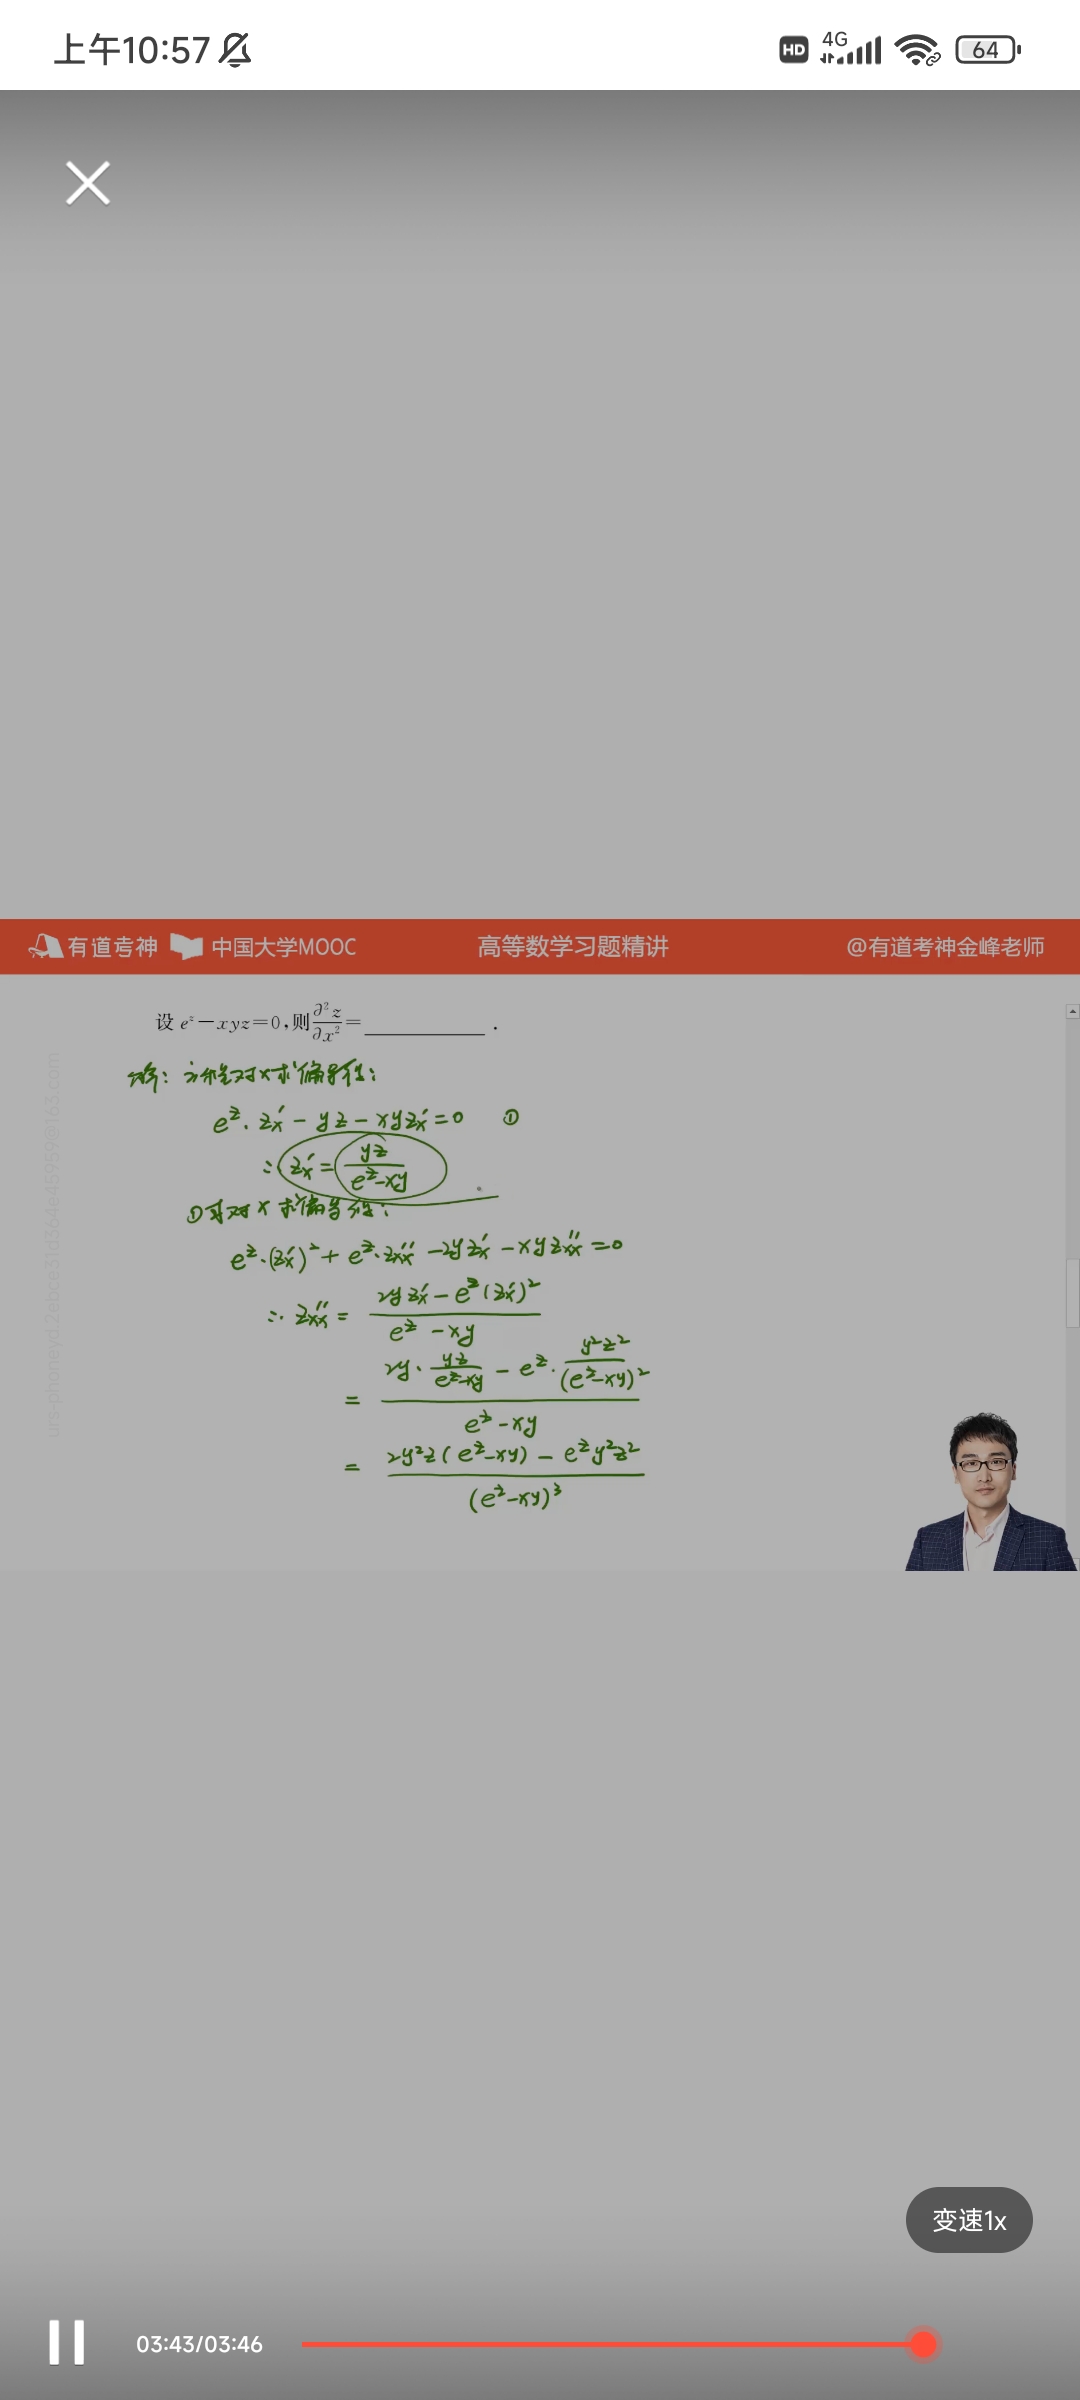 上午10:57 HD 4G 64
有道考神 中国大学MOOC 高等数学习题精讲 @有道考神金峰老师
设 e^z−xyz=0,则∂²z/∂x²=____________.
解: 方程对x求偏导得:
e^z·z'x − yz − xyz'x = 0 ①
∴ z'x = yz/(e^z−xy)
①再对x求偏导得:
e^z·(z'x)² + e^z·z''xx − 2yz'x − xyz''xx = 0
∴ z''xx = (2yz'x − e^z(z'x)²)/(e^z − xy)
= (2y·yz/(e^z−xy) − e^z·y²z²/(e^z−xy)²)/(e^z−xy)
= (2y²z(e^z−xy) − e^z y²z²)/(e^z−xy)³
变速1x
03:43/03:46